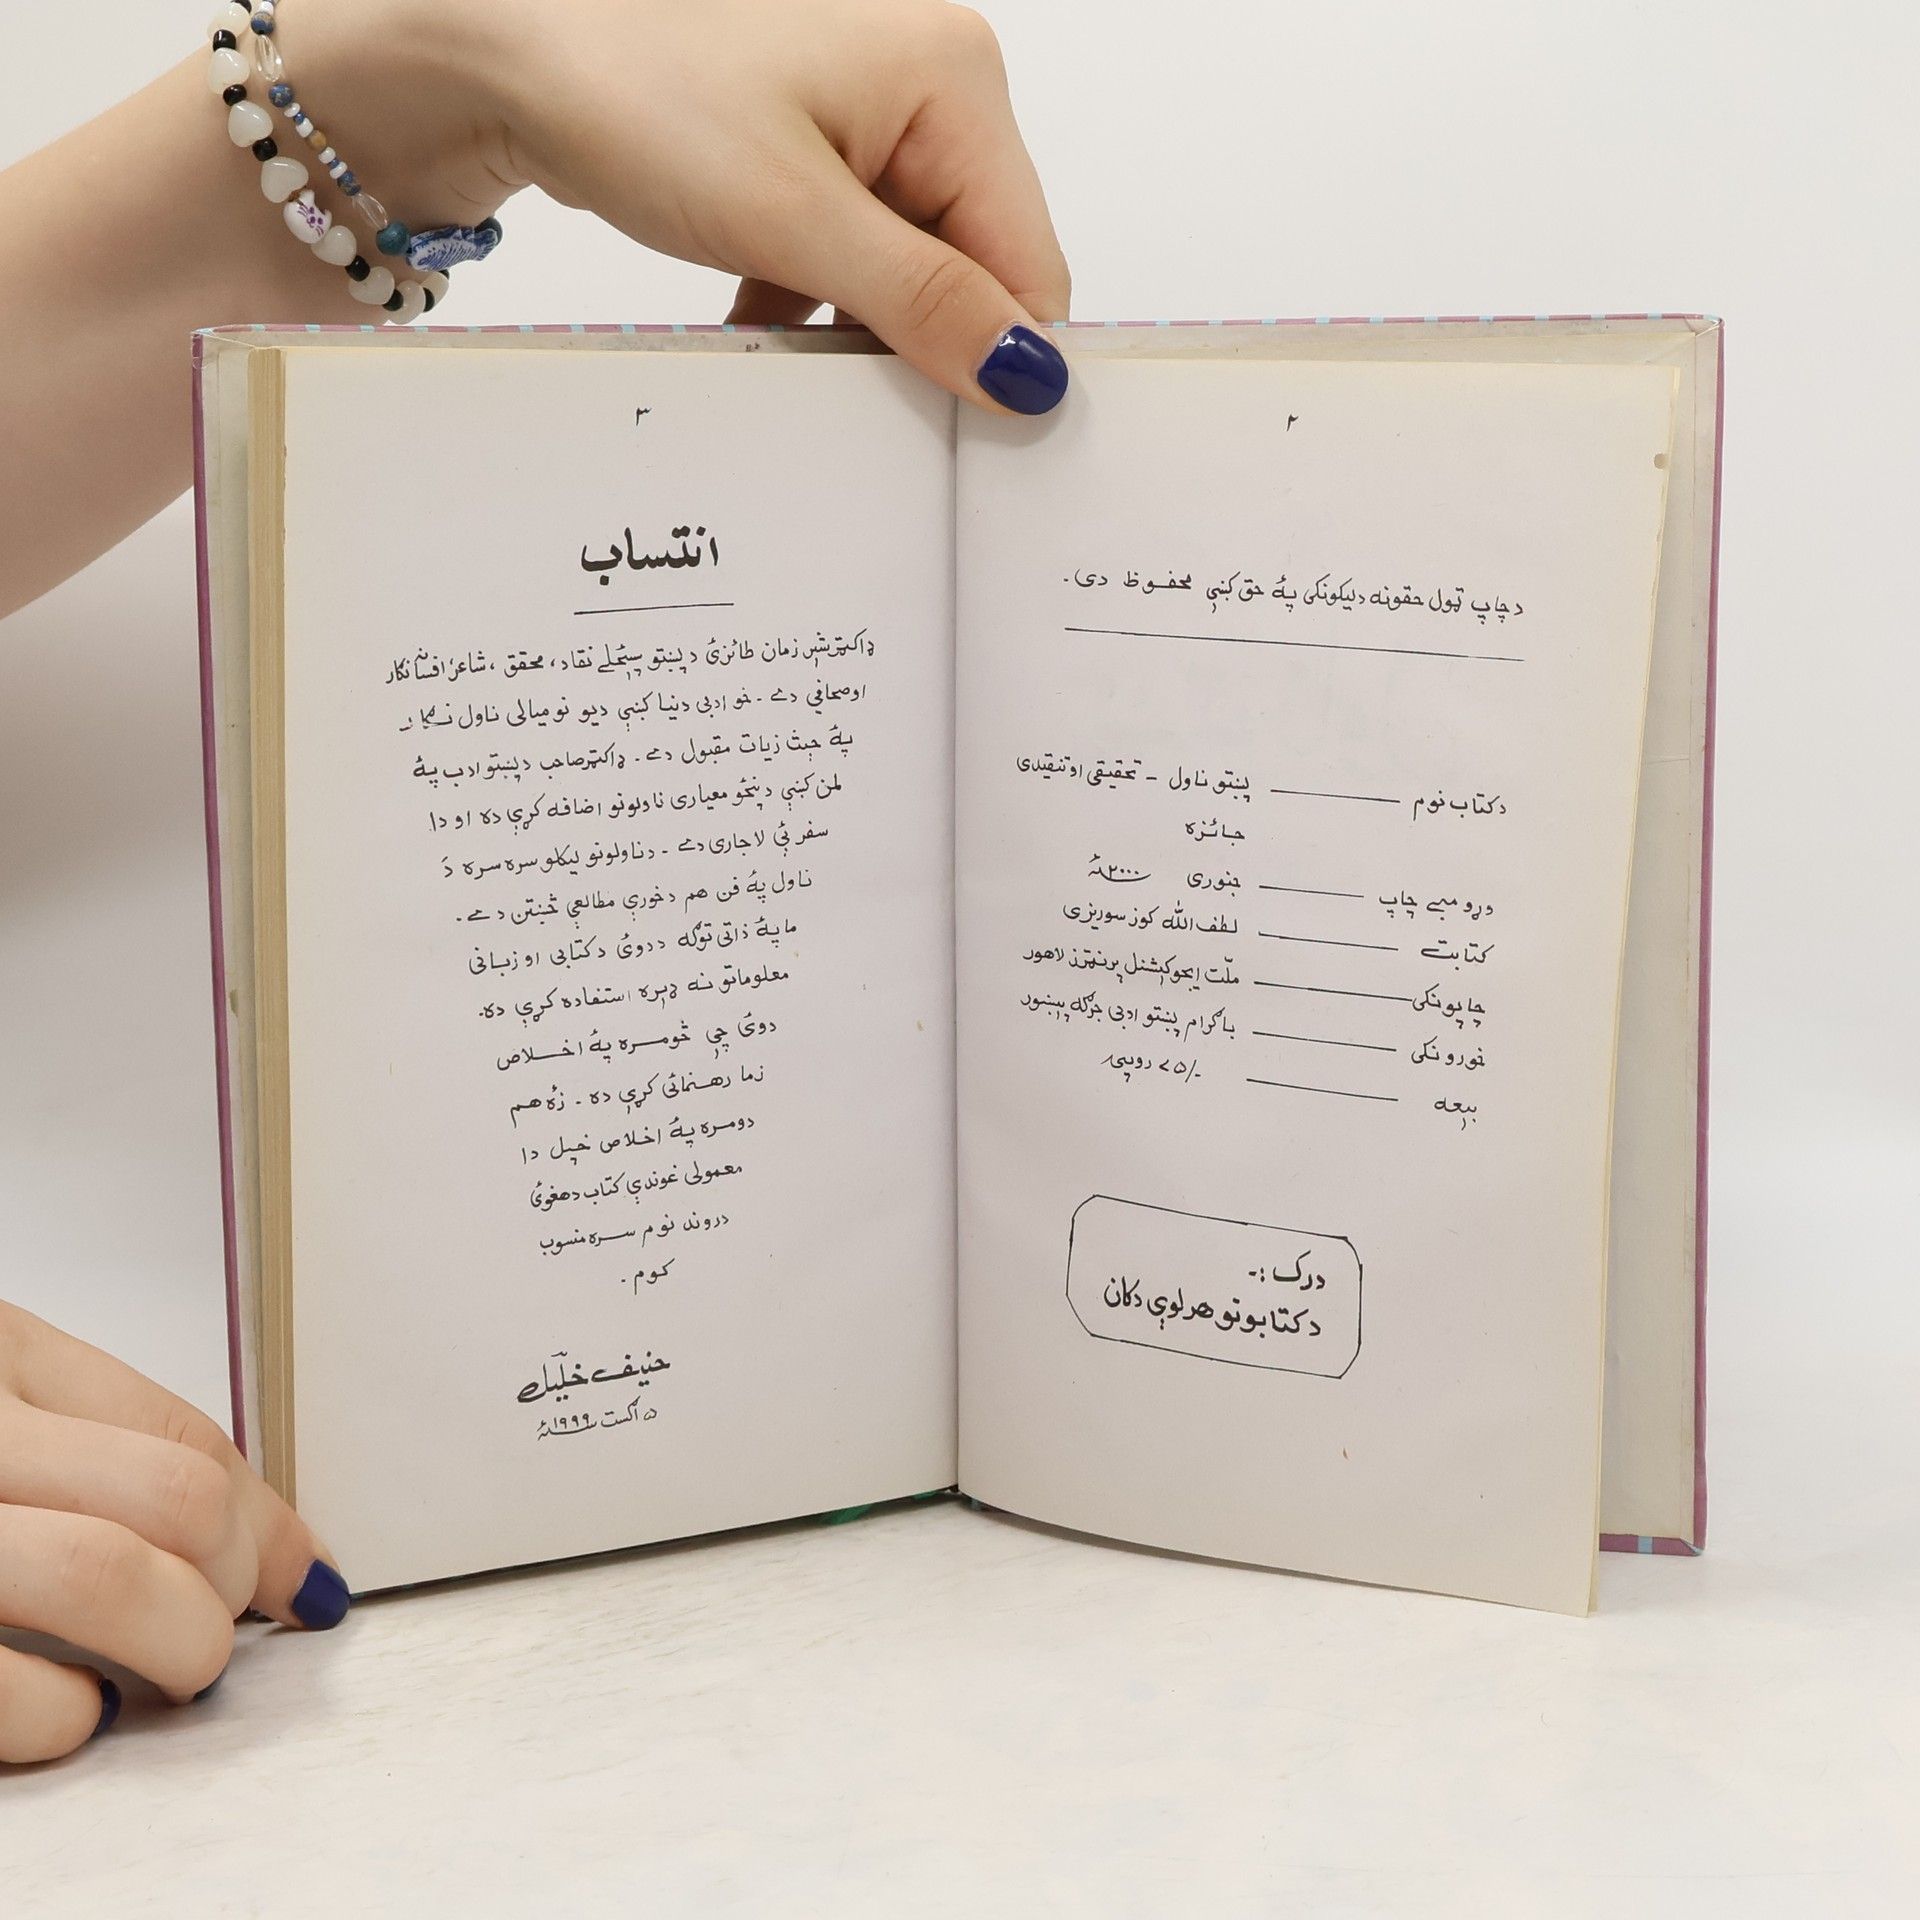 ۲
د چاپ ټول حقونه د ليکونکی پهٔ حق کښې محفوظ دی۔
د کتاب نوم ــــ پښتو ناول - تحقيقی او تنقيدی
جائزه
وړومبے چاپ ــــ جنوری ۲۰۰۰ء
کتابت ــــ لطف الله کوز سوريزی
چاپونکی ــــ ملّت ايجوکيشنل پرنټرز لاهور
خورونکی ــــ باګرام پښتو ادبی جرګه پېښور
بيعه ــــ ۷۵/- روپۍ
درک :-
د کتابونو هر لوې دکان
۳
انتساب
ډاکټر شېر زمان طائزئ د پښتو سېځلے نقاد، محقق، شاعر، افسانه نګار
او صحافي دے ۔ خو ادبی دنيا کښې د يو نوميالی ناول نګار
پهٔ حېث زيات مقبول دے ۔ ډاکټر صاحب د پښتو ادب پهٔ
لمن کښې د پنځو معياری ناولونو اضافه کړې ده او دا
سفر ئې لا جاری دے ۔ د ناولونو ليکلو سره سره دَ
ناول پهٔ فن هم د خورې مطالعې څښتن دے ۔
ما پهٔ ذاتی توګه د دوئ د کتابی او زبانی
معلوماتو نه ډېره استفاده کړې ده۔
دوئ چې څومره پهٔ اخلاص
زما رهنمائی کړې ده ۔ زهٔ هم
دومره پهٔ اخلاص خپل دا
معمولی غوندې کتاب د هغوئ
دروند نوم سره منسوب
کوم ۔
حنيف خليل
۵ اګست ۱۹۹۹ء